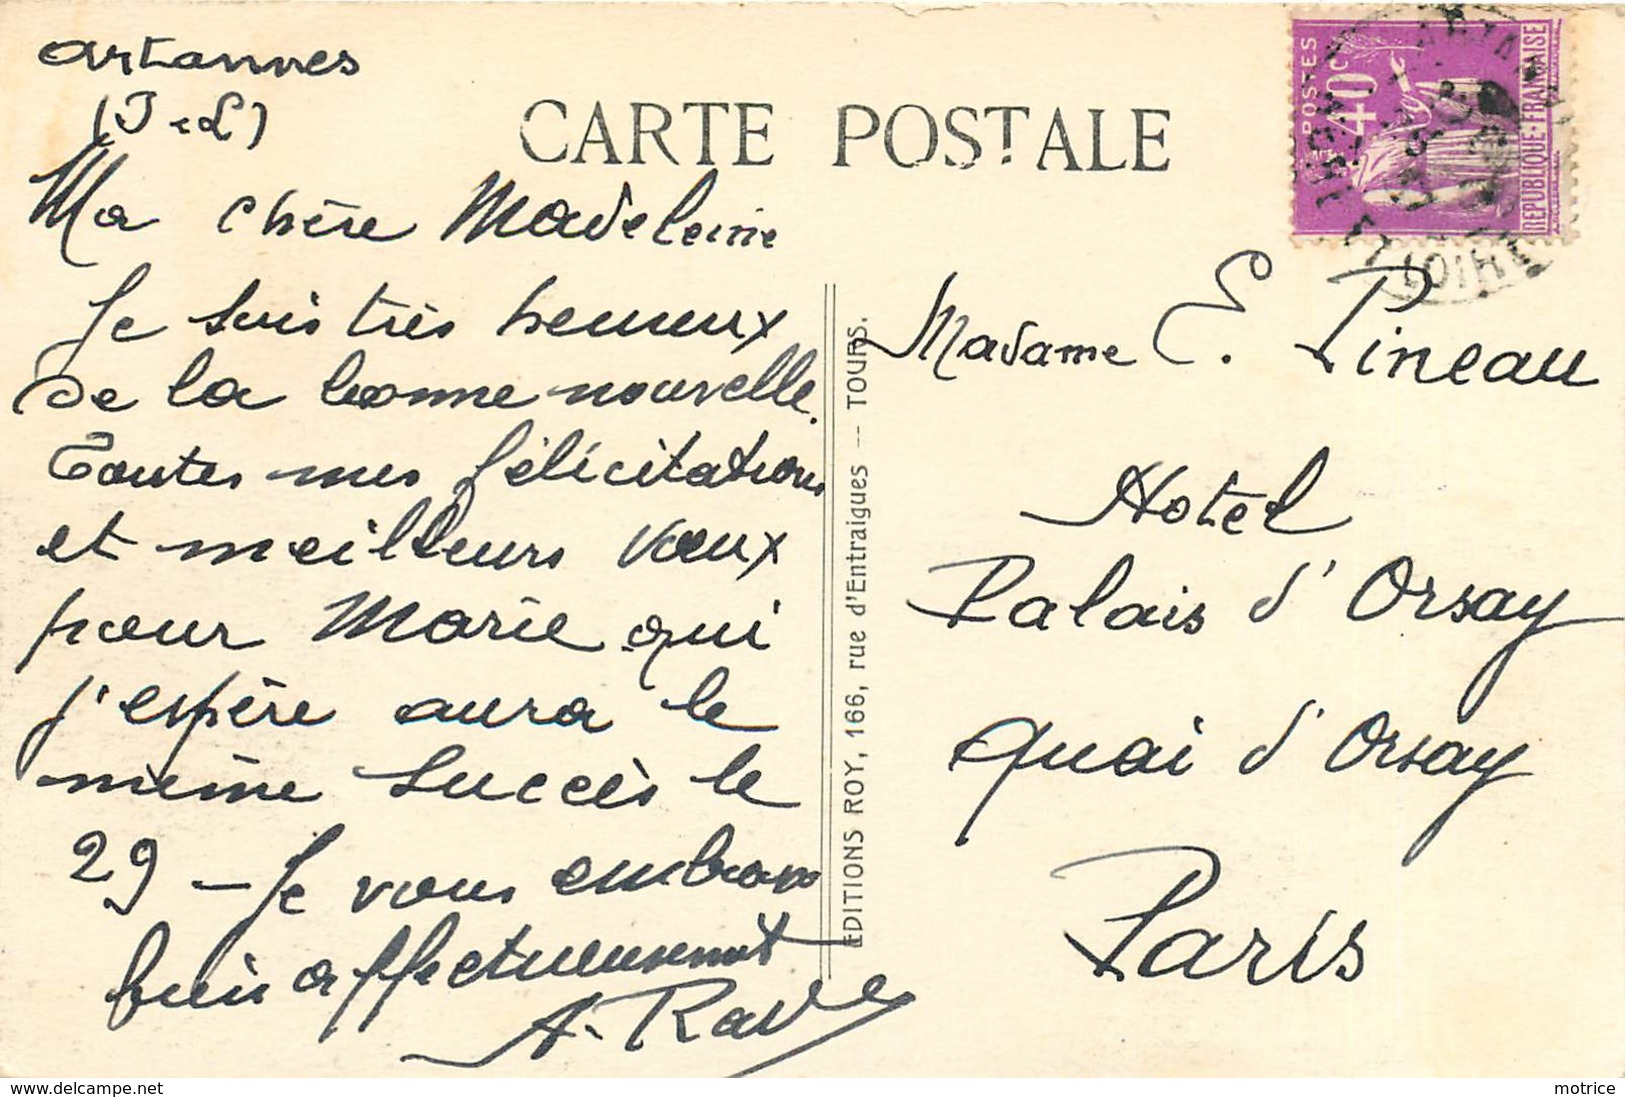 Artannes
(I-&L)
CARTE POSTALE
POSTES
40c
REPUBLIQUE-FRANÇAISE
INDRE ET LOIRE
Ma chère Madeleine
Je suis très heureux
de la bonne nouvelle.
Toutes mes félicitations
et meilleurs vœux
pour Marie qui
j'espère aura le
même succès le
29 - Je vous embrasse
bien affectueusement
A. Ravé
EDITIONS ROY, 166, rue d'Entraigues — TOURS.
Madame E. Pineau
Hotel
Palais d'Orsay
Quai d'Orsay
Paris
www.delcampe.net
motrice